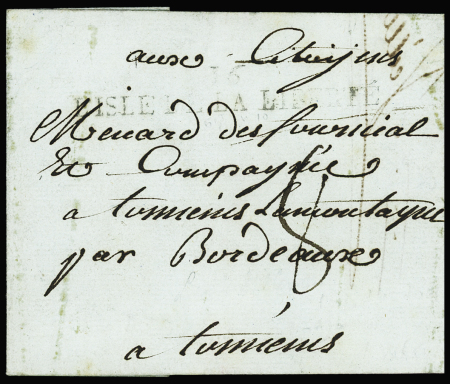 aux Citoyens
16
L'ISLE DE LA LIBERTÉ
Menard des fourniel
et Compagnie
a tonneins Lamontagne
par Bordeaux
a tonneins